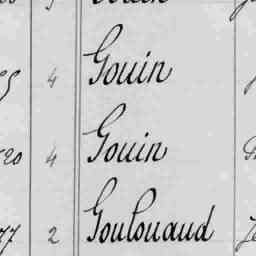 4 Gouin
20 4 Gouin
77 2 Goulouaud